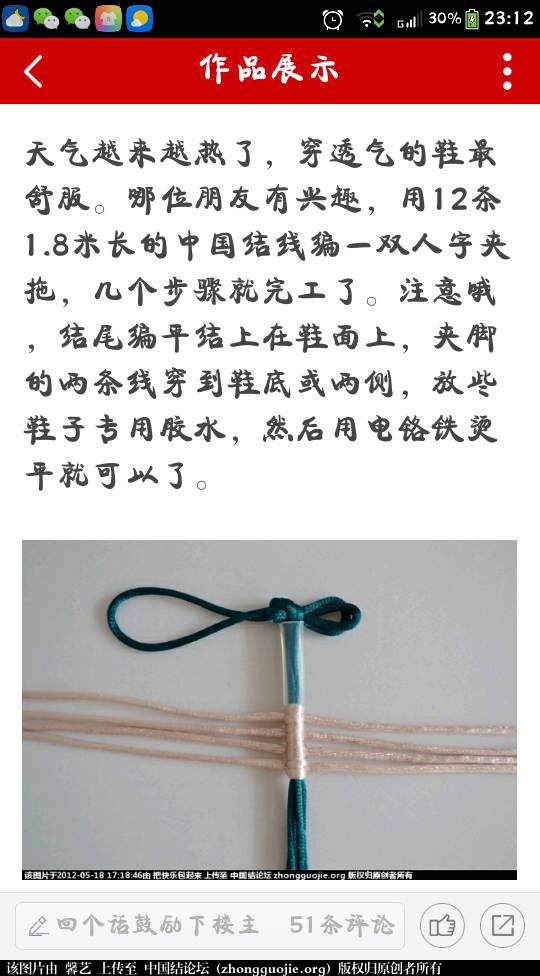 30% 23:12
作品展示
天气越来越热了，穿透气的鞋最
舒服。哪位朋友有兴趣，用12条
1.8米长的中国结线编一双人字夹
拖，几个步骤就完工了。注意哦
，结尾编平结上在鞋面上，夹脚
的两条线穿到鞋底或两侧，放些
鞋子专用胶水，然后用电铬铁烫
平就可以了。
该图片于2012-05-18 17:18:46由 把快乐包起来 上传至 中国结论坛 zhongguojie.org 版权归原创者所有
四个话鼓励下楼主 51条评论
该图片由 馨艺 上传至 中国结论坛 (zhongguojie.org) 版权归原创者所有